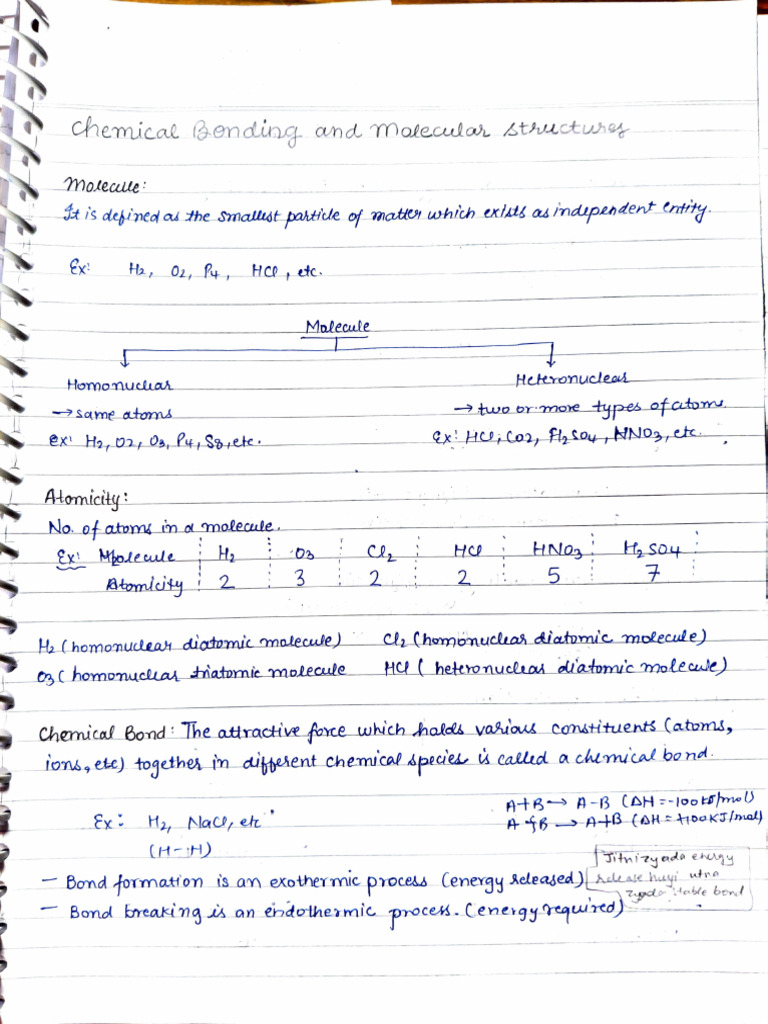 Chemical Bonding and Molecular Structures
Molecule:
It is defined as the smallest particle of matter which exists as independent entity.
Ex: H2, O2, P4, HCl, etc.
Molecule
Homonuclear
Heteronuclear
→ same atoms
→ two or more types of atoms.
ex: H2, O2, O3, P4, S8, etc.
Ex: HCl, CO2, H2SO4, HNO3, etc.
Atomicity:
No. of atoms in a molecule.
Ex: Molecule H2 O3 Cl2 HCl HNO3 H2SO4
Atomicity 2 3 2 2 5 7
H2 (homonuclear diatomic molecule) Cl2 (homonuclear diatomic molecule)
O3 (homonuclear triatomic molecule HCl (heteronuclear diatomic molecule)
Chemical Bond: The attractive force which holds various constituents (atoms,
ions, etc) together in different chemical species is called a chemical bond.
A+B → A-B (ΔH = -100KJ/mol)
Ex: H2, NaCl, etc
A B → A+B (ΔH = +100KJ/mol)
(H-H)
Jitni zyada energy
- Bond formation is an exothermic process (energy released)
release huyi utna
zyada stable bond
- Bond breaking is an endothermic process. (energy required)